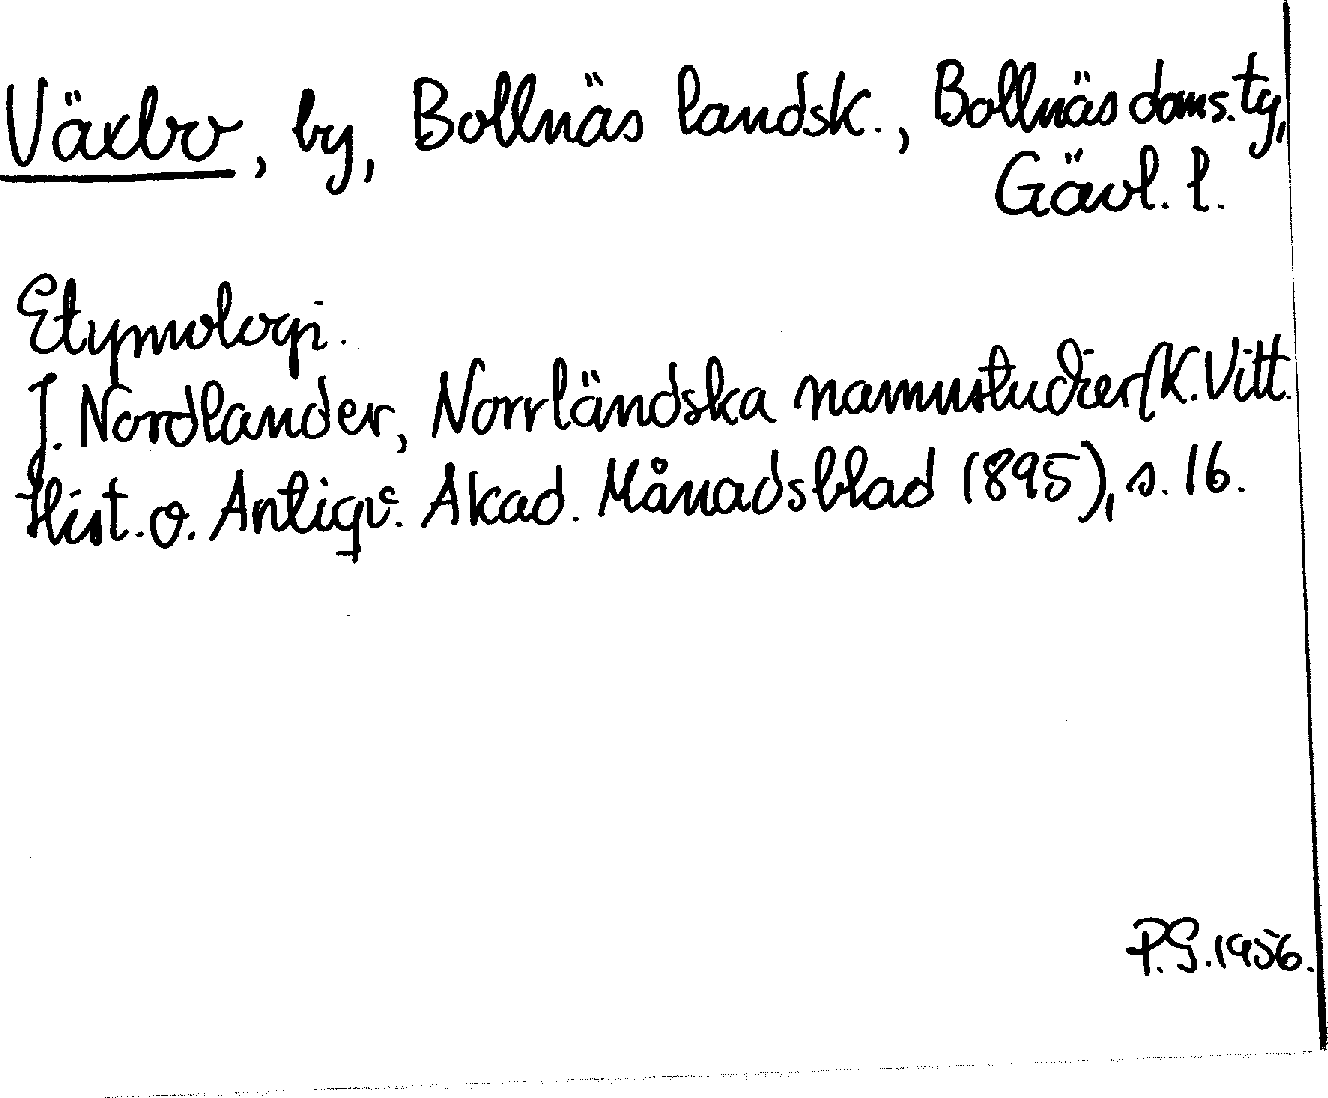 Växbo, by, Bollnäs landsk., Bollnäs doms.tg,
Gävl. l.
Etymologi.
J. Nordlander, Norrländska namnstudier (K. Vitt.
Hist. o. Antiqv. Akad. Månadsblad 1895), s. 16.
P.G. 1956.